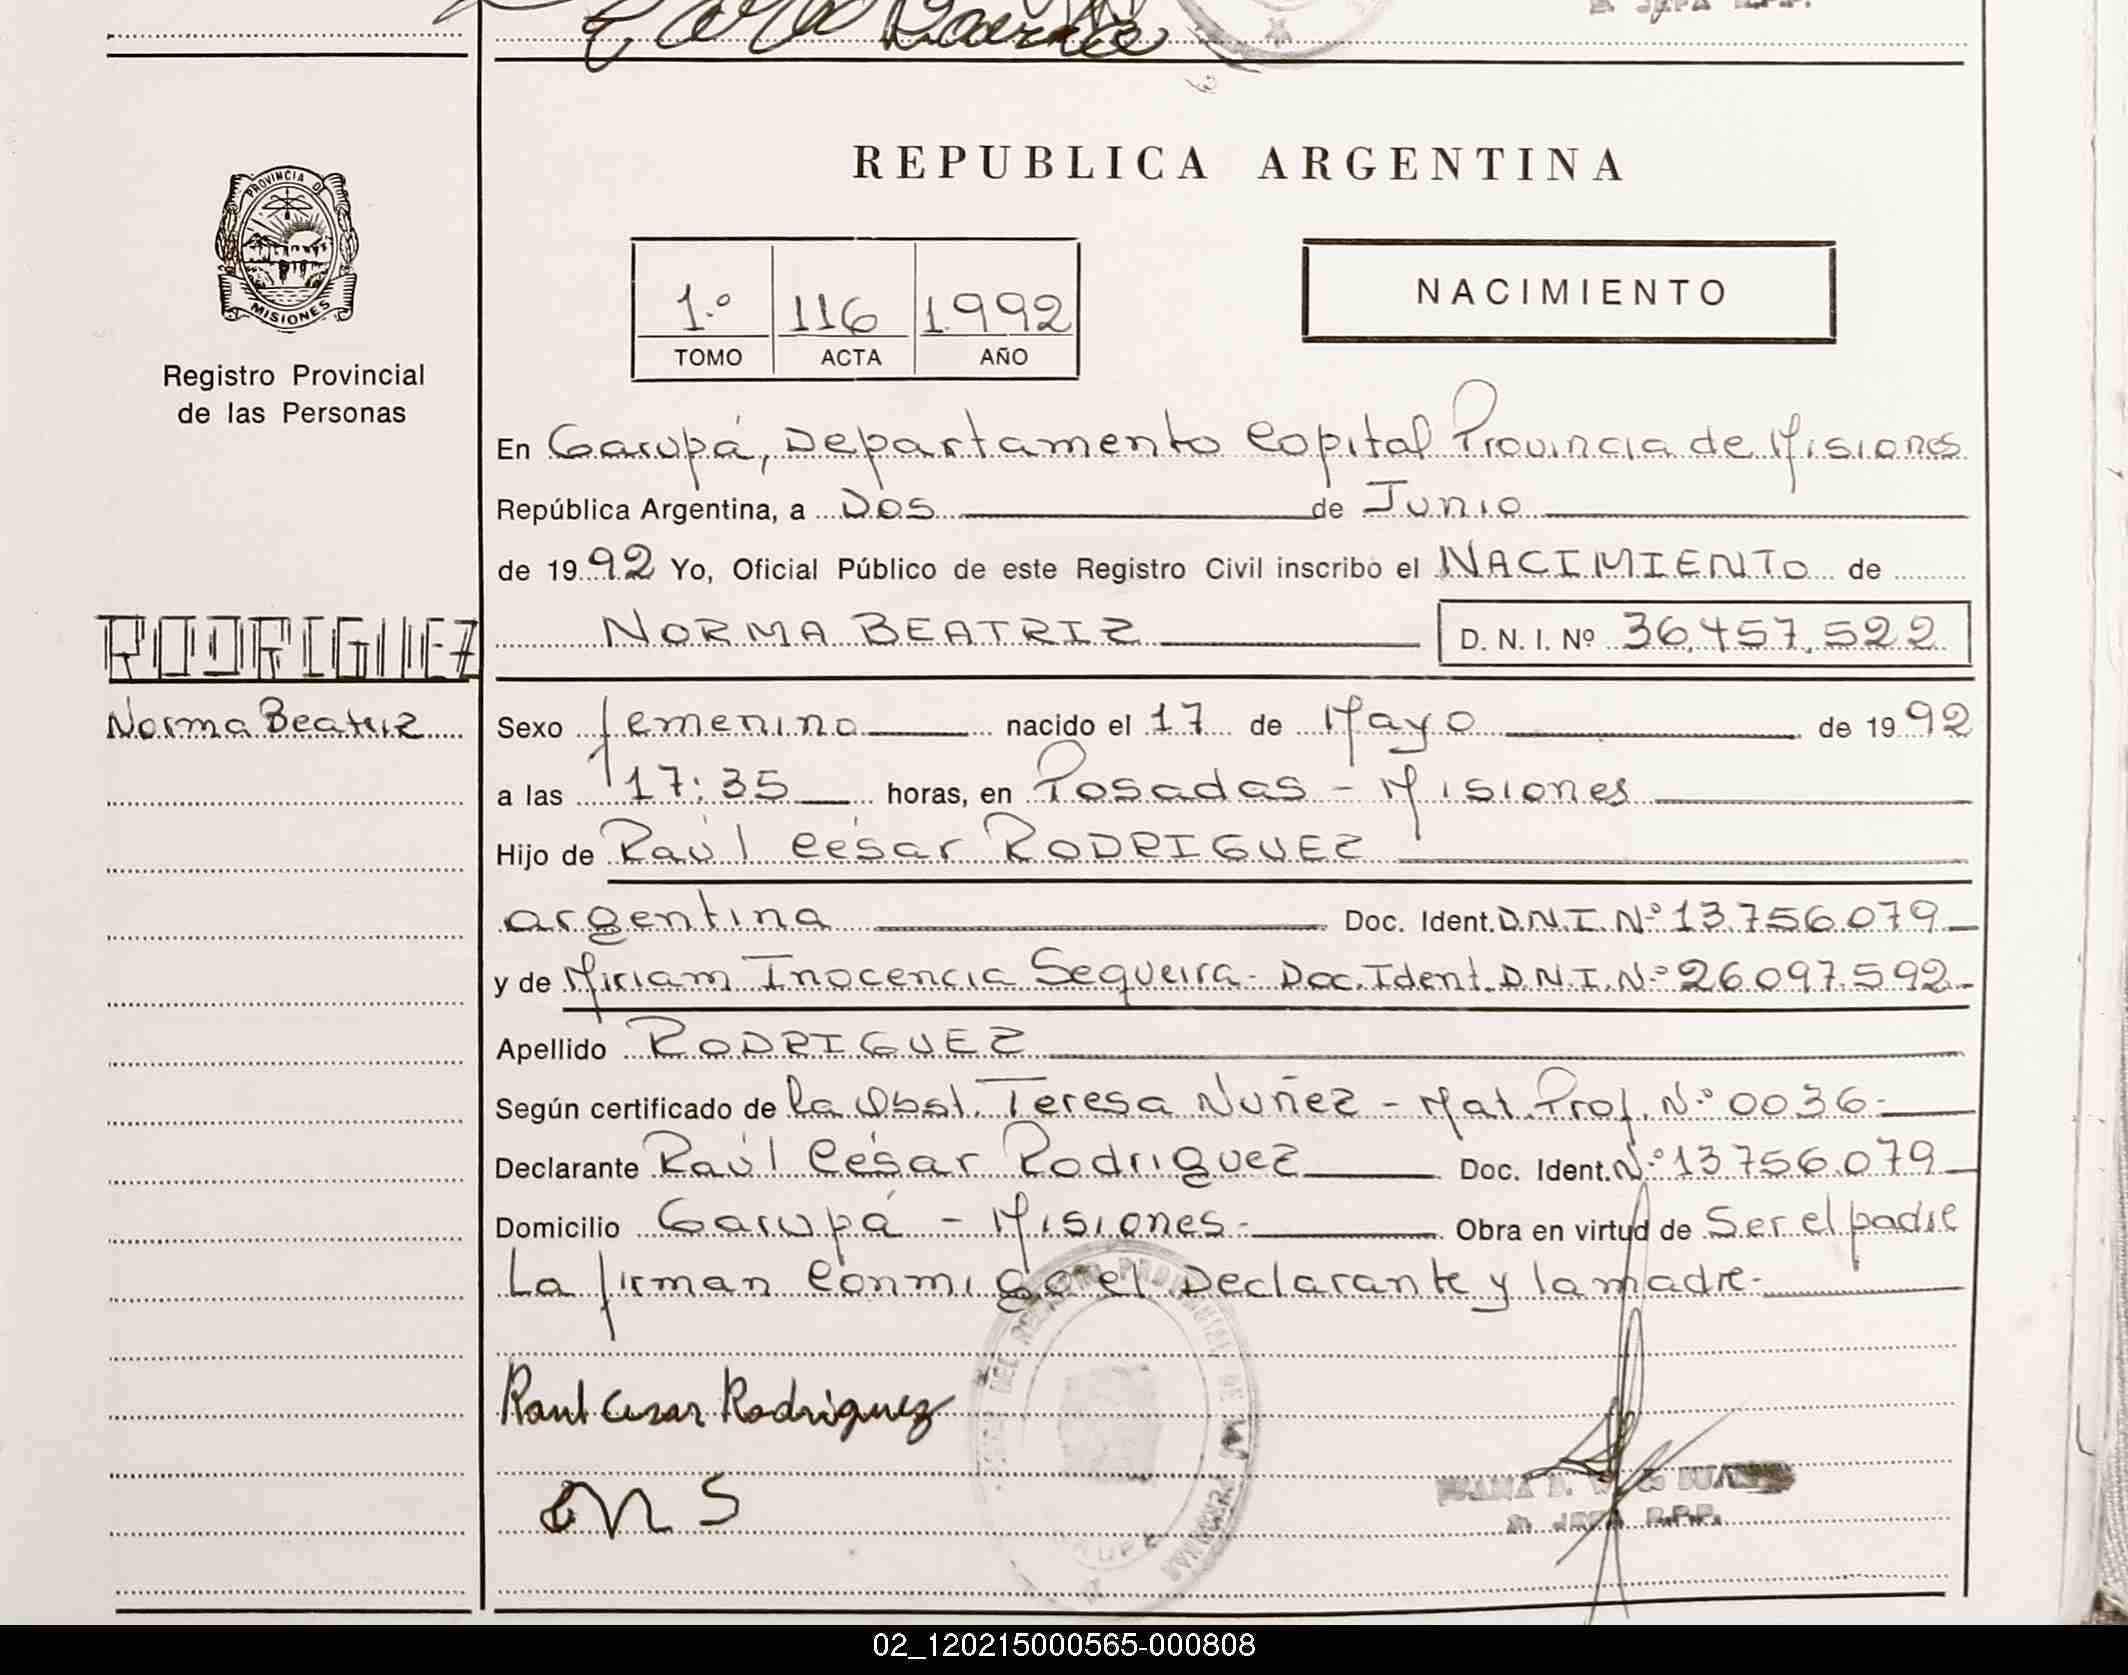 REPUBLICA ARGENTINA
PROVINCIA D
MISIONES
Registro Provincial
de las Personas
1.º 116 1992
TOMO ACTA AÑO
NACIMIENTO
En Garupá, Departamento Capital Provincia de Misiones
República Argentina, a Dos de Junio
de 1992 Yo, Oficial Público de este Registro Civil inscribo el NACIMIENTO de
RODRIGUEZ
NORMA BEATRIZ D. N. I. Nº 36,457,522
Norma Beatriz
Sexo femenino nacido el 17 de Mayo de 1992
a las 17:35 horas, en Posadas - Misiones
Hijo de Raúl César RODRIGUEZ
argentina Doc. Ident. D.N.I. Nº 13.756.079
y de Miriam Inocencia Sequeira - Doc. Ident. D.N.I. Nº 26097.592
Apellido RODRIGUEZ
Según certificado de la Obst. Teresa Nuñez - Mat. Prof. Nº 0036-
Declarante Raúl César Rodriguez Doc. Ident. Nº 13756.079
Domicilio Garupá - Misiones- Obra en virtud de Ser el padre
La firman conmigo el Declarante y la madre-
Raul Cesar Rodriguez
S
JEFA R.P.P.
02_120215000565-000808